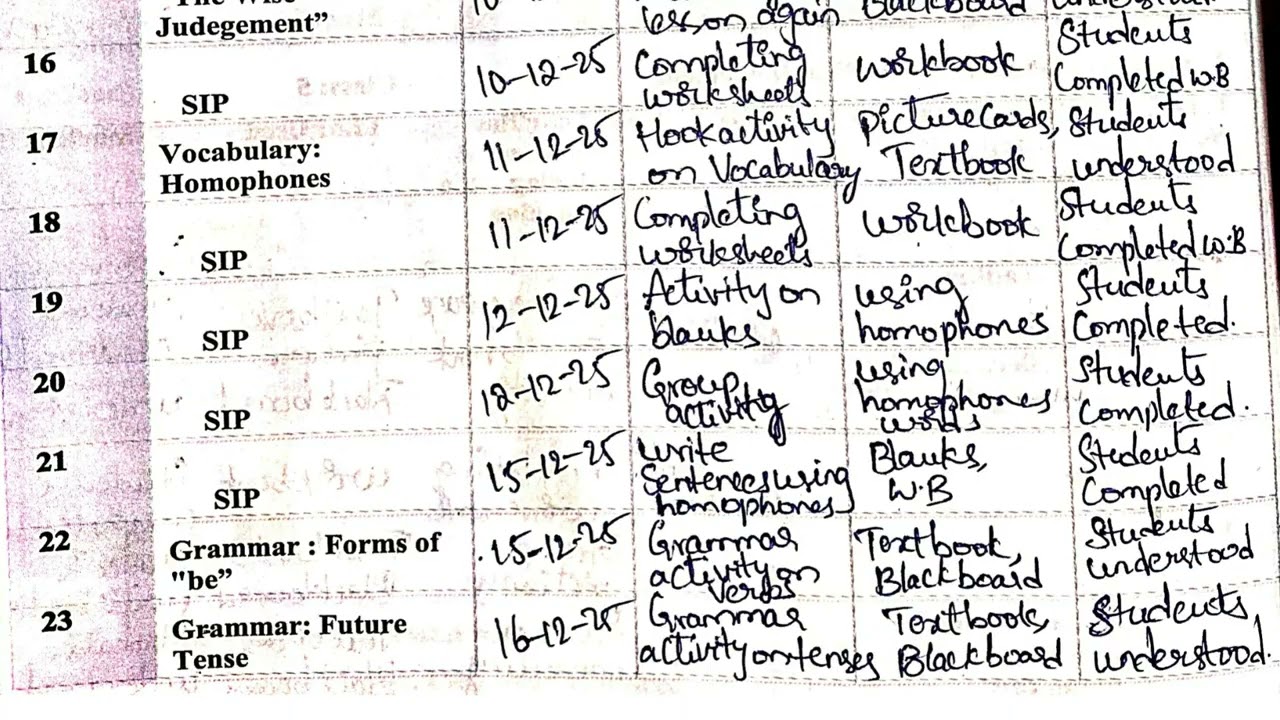 Judegement”
lesson again
Blackboard
16
SIP
10-12-25
Completing
worksheets
workbook
Students
Completed W.B
17
Vocabulary:
Homophones
11-12-25
Hook activity
on Vocabulary
picture Cards,
Textbook
Students
understood
18
SIP
11-12-25
Completing
worksheets
workbook
Students
Completed W.B
19
SIP
12-12-25
Activity on
blanks
using
homophones
Students
Completed.
20
SIP
12-12-25
Group
activity
using
homophones
words
Students
Completed.
21
SIP
15-12-25
write
Sentences using
homophones
Blanks,
W.B
Students
Completed
22
Grammar : Forms of
"be”
15-12-25
Grammar
activity on
Verbs
Textbook,
Blackboard
Students
understood
23
Grammar: Future
Tense
16-12-25
Grammar
activity on tenses
Textbook,
Blackboard
Students
understood.